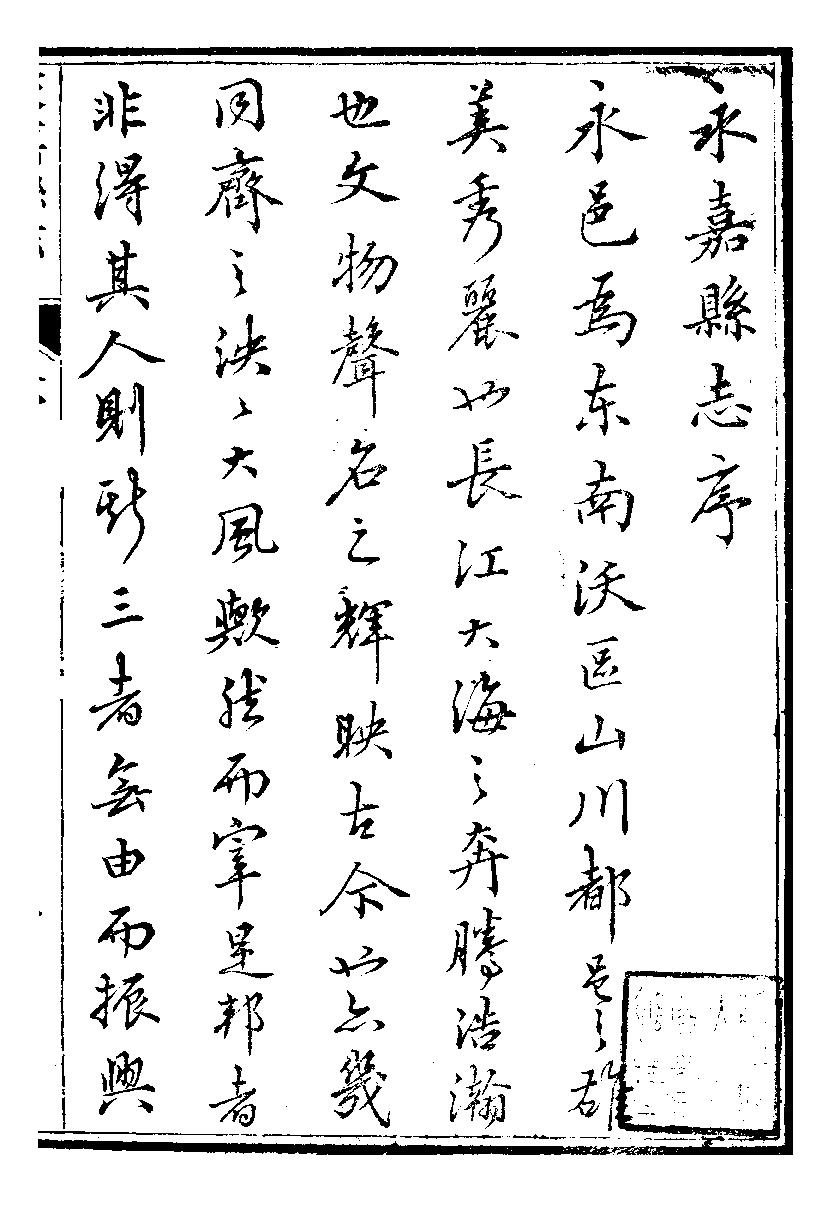 永嘉縣志序
永邑爲东南沃區山川都邑之雄
美秀麗也長江大海之奔騰浩瀚
也文物聲名之輝映古今也亦幾
同齊之泱泱大風歟然而宰是邦者
非得其人則斯三者無由而振興